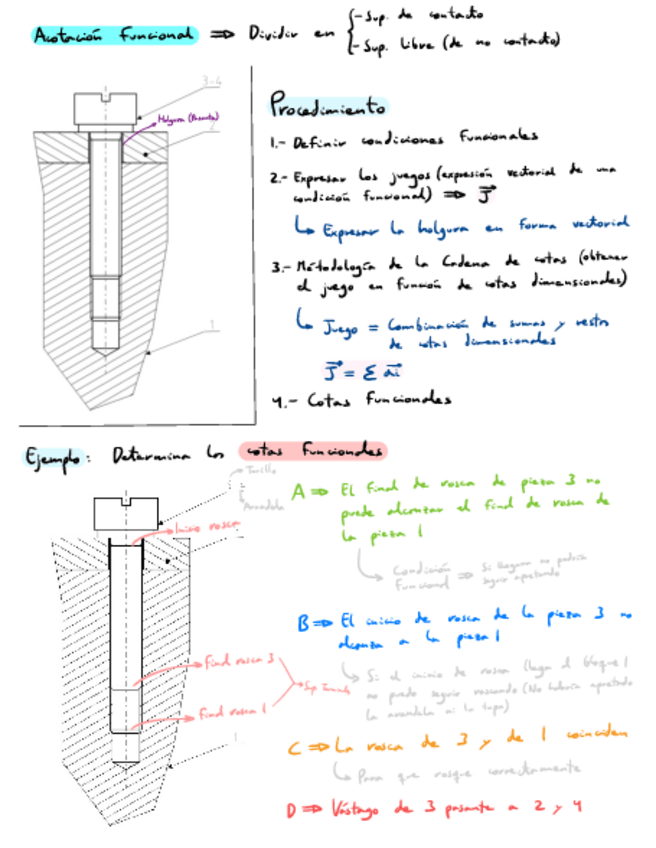 Acotación Funcional ⇒ Dividir en { - Sup. de contacto
- Sup. Libre (de no contacto)
3-4
Holgura (Pasante)
2
1
Procedimiento
1.- Definir condiciones Funcionales
2.- Expresar los juegos (expresión vectorial de una
condición funcional) ⇒ J⃗
↳ Expresar la holgura en forma vectorial
3.- Metodología de la Cadena de cotas (obtener
el juego en función de cotas dimensionales)
↳ Juego = Combinación de sumas y restas
de cotas dimensionales
J⃗ = Σ a⃗i
4.- Cotas Funcionales
Ejemplo: Determina las cotas Funcionales
Tornillo
Arandela
Inicio rosca
Final rosca 3
Final rosca 1
1
A ⇒ El final de rosca de pieza 3 no
puede alcanzar el final de rosca de
la pieza 1
↳ Condición Funcional ⇒ Si llegara no podría
seguir apretando
B ⇒ El inicio de rosca de la pieza 3 no
alcanza a la pieza 1
↳ Si el inicio de rosca llega al bloque 1
no puede seguir roscando (No habría apretado
la arandela ni la tapa)
C ⇒ La rosca de 3 y de 1 coinciden
↳ Para que rosque correctamente
D ⇒ Vástago de 3 pasante a 2 y 4